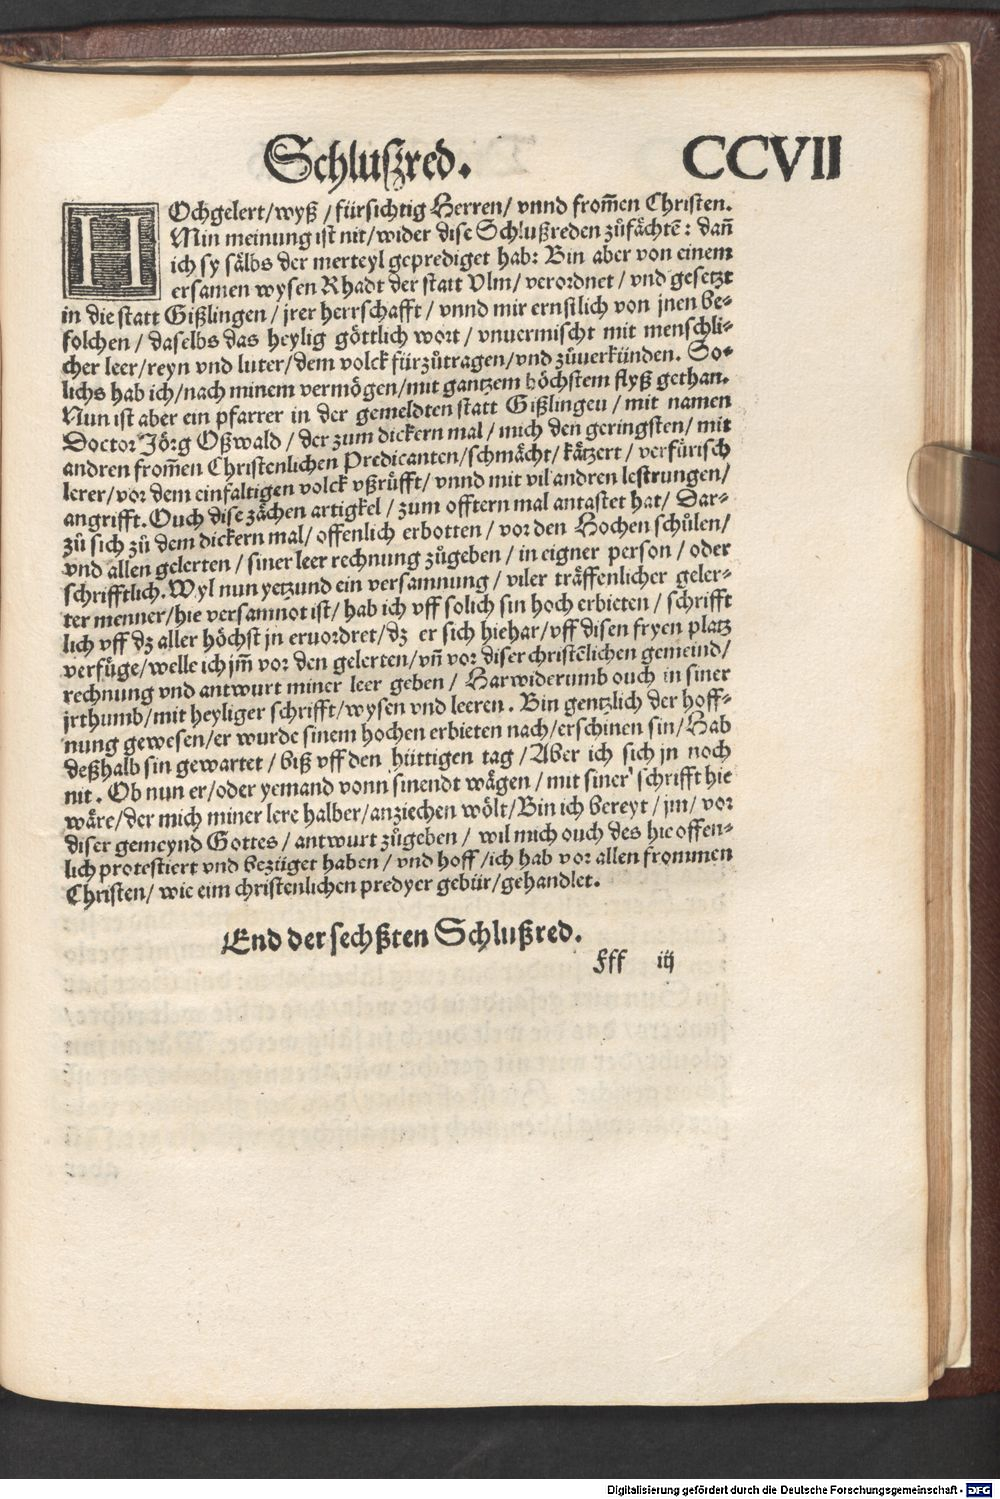 Schlußred. CCVII
HOchgelert/wyß/fürsichtig Herren/vnnd from̃en Christen.
Min meinung ist nit/wider dise Schlußreden zůfächtẽ: dañ
ich sy sälbs der merteyl geprediget hab: Bin aber von einem
ersamen wysen Rhadt der statt Vlm/verordnet/vnd gesetzt
in die statt Gißlingen/jrer herrschafft/vnnd mir ernstlich von jnen be⸗
folchen/daselbs das heylig göttlich wort/vnuermischt mit menschli⸗
cher leer/reyn vnd luter/dem volck fürzůtragen/vnd zůuerkünden. So⸗
lichs hab ich/nach minem vermögen/mit gantzem höchstem flyß gethan.
Nun ist aber ein pfarrer in der gemeldten statt Gißlingen/mit namen
Doctor Jörg Oßwald/der zum dickern mal/mich den geringsten/mit
andren from̃en Christenlichen Predicanten/schmächt/kätzert/verfürisch
lerer/vor dem einfaltigen volck vßrüfft/vnnd mit vil andren lestrungen/
angrifft. Ouch dise zächen artigkel/zum offtern mal antastet hat/Dar⸗
zů sich zů dem dickern mal/offenlich erbotten/vor den Hochen schůlen/
vnd allen gelerten/siner leer rechnung zůgeben/in eigner person/oder
schrifftlich. Wyl nun yetzund ein versamnung/viler träffenlicher geler⸗
ter menner/hie versamnot ist/hab ich vff solich sin hoch erbieten/schrifft
lich vff dz aller höchst jn eruordret/dz er sich hiehar/vff disen fryen platz
verfüge/welle ich jm̃ vor den gelerten/vñ vor diser christẽlichen gemeind/
rechnung vnd antwurt miner leer geben/Harwiderumb ouch in siner
jrthumb/mit heyliger schrifft/wysen vnd leeren. Bin gentzlich der hoff⸗
nung gewesen/er wurde sinem hochen erbieten nach/erschinen sin/Hab
deßhalb sin gewartet/biß vff den hüttigen tag/Aber ich sich jn noch
nit. Ob nun er/oder yemand vonn sinendt wägen/mit siner schrifft hie
wäre/der mich miner lere halber/anziechen wölt/Bin ich bereyt/jm/vor
diser gemeynd Gottes/antwurt zůgeben/wil mich ouch des hie offen⸗
lich protestiert vnd bezüget haben/vnd hoff/ich hab vor allen frommen
Christen/wie eim christenlichen predyer gebür/gehandlet.
End der sechßten Schlußred.
fff iij
Digitalisierung gefördert durch die Deutsche Forschungsgemeinschaft - DFG